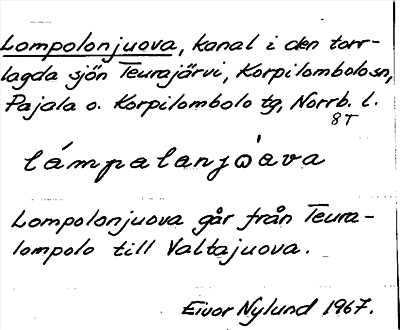 Lompolonjuova, kanal i den torr-
lagda sjön Teurajärvi, Korpilombolo sn,
Pajala o. Korpilombolo tg, Norrb. l.
8T
lámpalanjὼava
Lompolonjuova går från Teura-
lompolo till Valtajuova.
Eivor Nylund 1967.